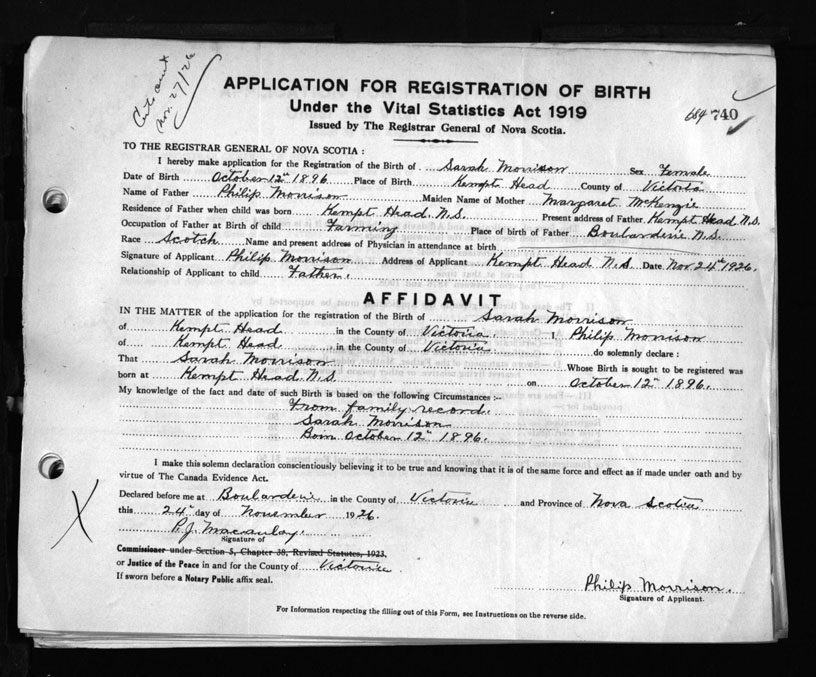 Nov. 27/26
APPLICATION FOR REGISTRATION OF BIRTH
Under the Vital Statistics Act 1919
684 740
Issued by The Registrar General of Nova Scotia.
TO THE REGISTRAR GENERAL OF NOVA SCOTIA :
I hereby make application for the Registration of the Birth of Sarah Morrison Sex Female
Date of Birth October 12th 1896 Place of Birth Kempt Head County of Victoria
Name of Father Philip Morrison Maiden Name of Mother Margaret McKenzie
Residence of Father when child was born Kempt Head N.S. Present address of Father Kempt Head N.S.
Occupation of Father at Birth of child Farming Place of birth of Father Boularderie N.S.
Race Scotch Name and present address of Physician in attendance at birth
Signature of Applicant Philip Morrison Address of Applicant Kempt Head N.S. Date Nov 24th 1926.
Relationship of Applicant to child Father.
AFFIDAVIT
IN THE MATTER of the application for the registration of the Birth of Sarah Morrison
of Kempt Head in the County of Victoria I, Philip Morrison
of Kempt Head in the County of Victoria do solemnly declare :
That Sarah Morrison Whose Birth is sought to be registered was
born at Kempt Head N.S. on October 12th 1896.
My knowledge of the fact and date of such Birth is based on the following Circumstances :-
From family record.
Sarah Morrison
Born October 12th 1896.
I make this solemn declaration conscientiously believing it to be true and knowing that it is of the same force and effect as if made under oath and by
virtue of The Canada Evidence Act.
Declared before me at Boularderie in the County of Victoria and Province of Nova Scotia
this 24th day of November 1926.
P.J. Macaulay.
Signature of
Commissioner under Section 5, Chapter 38, Revised Statutes, 1923,
or Justice of the Peace in and for the County of Victoria
If sworn before a Notary Public affix seal.
Philip Morrison.
Signature of Applicant.
For Information respecting the filling out of this Form, see Instructions on the reverse side.